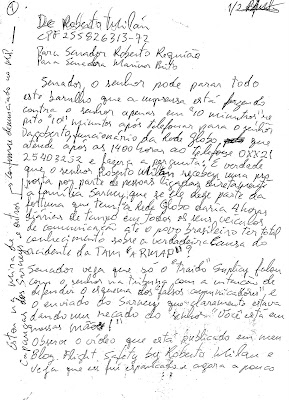 1
1/2
De Roberto Milan
CPF 255826313-72
Para Senador Roberto Requião
Para Senadora Marina Brito
Senador o senhor pode parar todo
este barulho que a imprensa está fazendo
contra o senhor apenas em "10 minutos" re
pito "10" minutos após telefonar para o senhor
funcionário da Rede Globo que
atende após as 1400 no telefone 0XX21
25403232 e fazer a pergunta: É verdade
que o senhor Roberto Milan recebeu uma pro
posta por parte de pessoas ligadas diretamente
a família Sarney, que se ele desse parte da
fortuna que tem, a Rede Globo daria 4 horas
diárias de tempo em todos os seus veículos
de comunicação até o povo brasileiro ter total
conhecimento sobre a verdadeira causa do
acidente da TAM "ARMADO"?
Senador veja que só o "traído" Suplicy falou
com o senhor na tribuna com a intenção de
defender o esquema dos "falsos comunicadores", e
o enviado do Sarney que claramente estava
dando um recado do "senhor": Você está em
nossas mãos!"
Observe o vídeo que está publicado em meu
Blog Flight Safety by Roberto Milan e
veja que eu fui espancado e agora a pouco